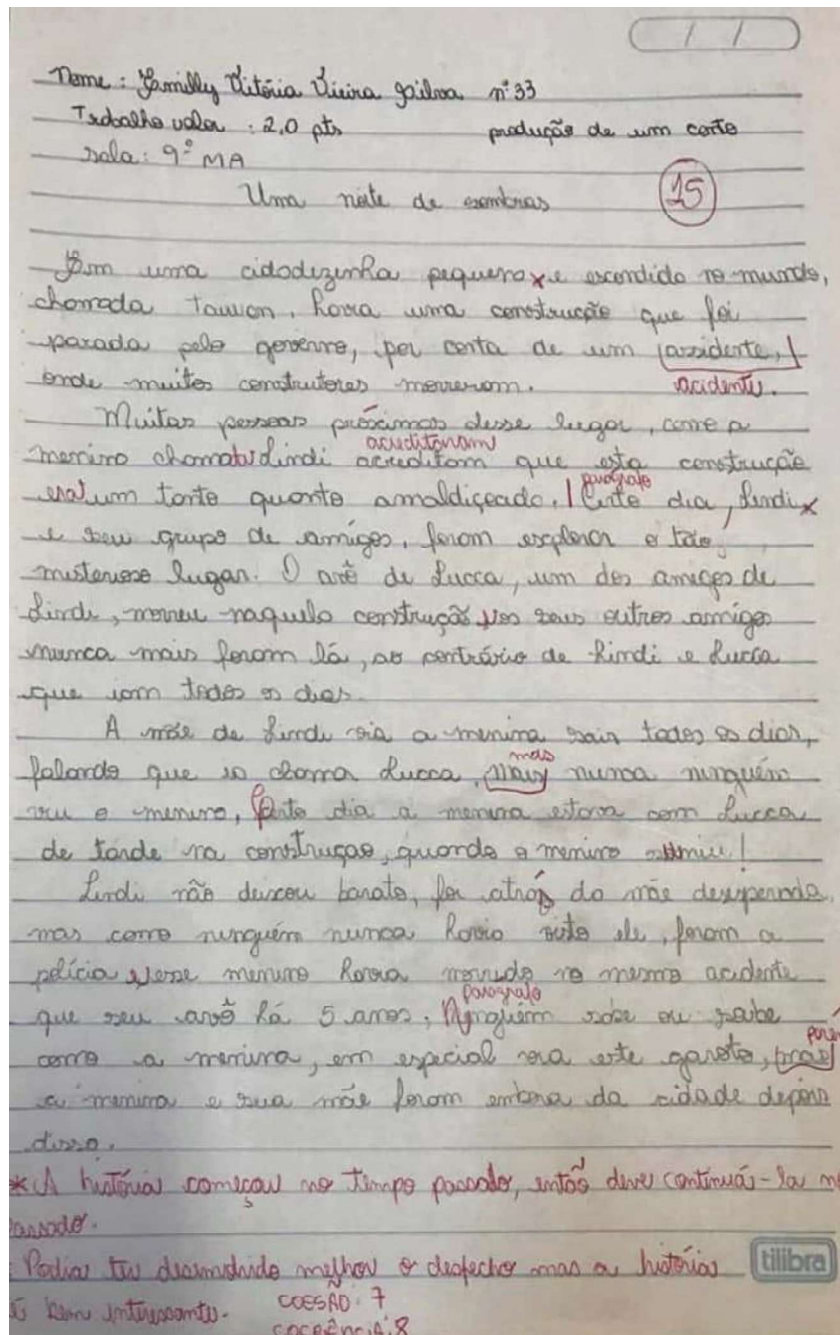 Nome: Jamilly Vitória Vieira Silva n° 33
Trabalho valor : 2,0 pts produção de um conto
sala: 9° MA
Uma noite de sombras 15
Em uma cidadezinha pequena x e escondida no mundo,
chamada Tauuon, havia uma construção que foi
parada pelo governo, por conta de um assidente,
onde muitos construtores morreram. acidente.
Muitas pessoas próximas desse lugar, como a
acreditavam
menina chamada Lindi acreditam que esta construção
era um tanto quanto amaldiçoada. parágrafo Certo dia, Lindi x
e seu grupo de amigos, foram explorar o tão
misterioso lugar. O avô de Lucca, um dos amigos de
Lindi, morreu naquela construção e os seus outros amigos
nunca mais foram lá, ao contrário de Lindi e Lucca
que iam todos os dias.
A mãe de Lindi via a menina sair todos os dias,
falando que ia chama Lucca, mais mas nunca ninguém
viu o menino, Certo dia a menina estava com Lucca
de tarde na construção, quando o menino sumiu!
Lindi não deixou barato, foi atrás da mãe desesperada,
mas como ninguém nunca havia visto ele, foram a
polícia e esse menino havia morrido no mesmo acidente
parágrafo
que seu avô há 5 anos, Ninguém sabe ou soube
como a menina, em especial via este garoto, mas porém
a menina e sua mãe foram embora da cidade depois
disso.
* A história começou no tempo passado, então deve continuá-la no
passado.
Podia ter desenvolvido melhor o desfecho mas a história
é bem interessante.
tilibra
COESÃO: 7
COERÊNCIA: 8